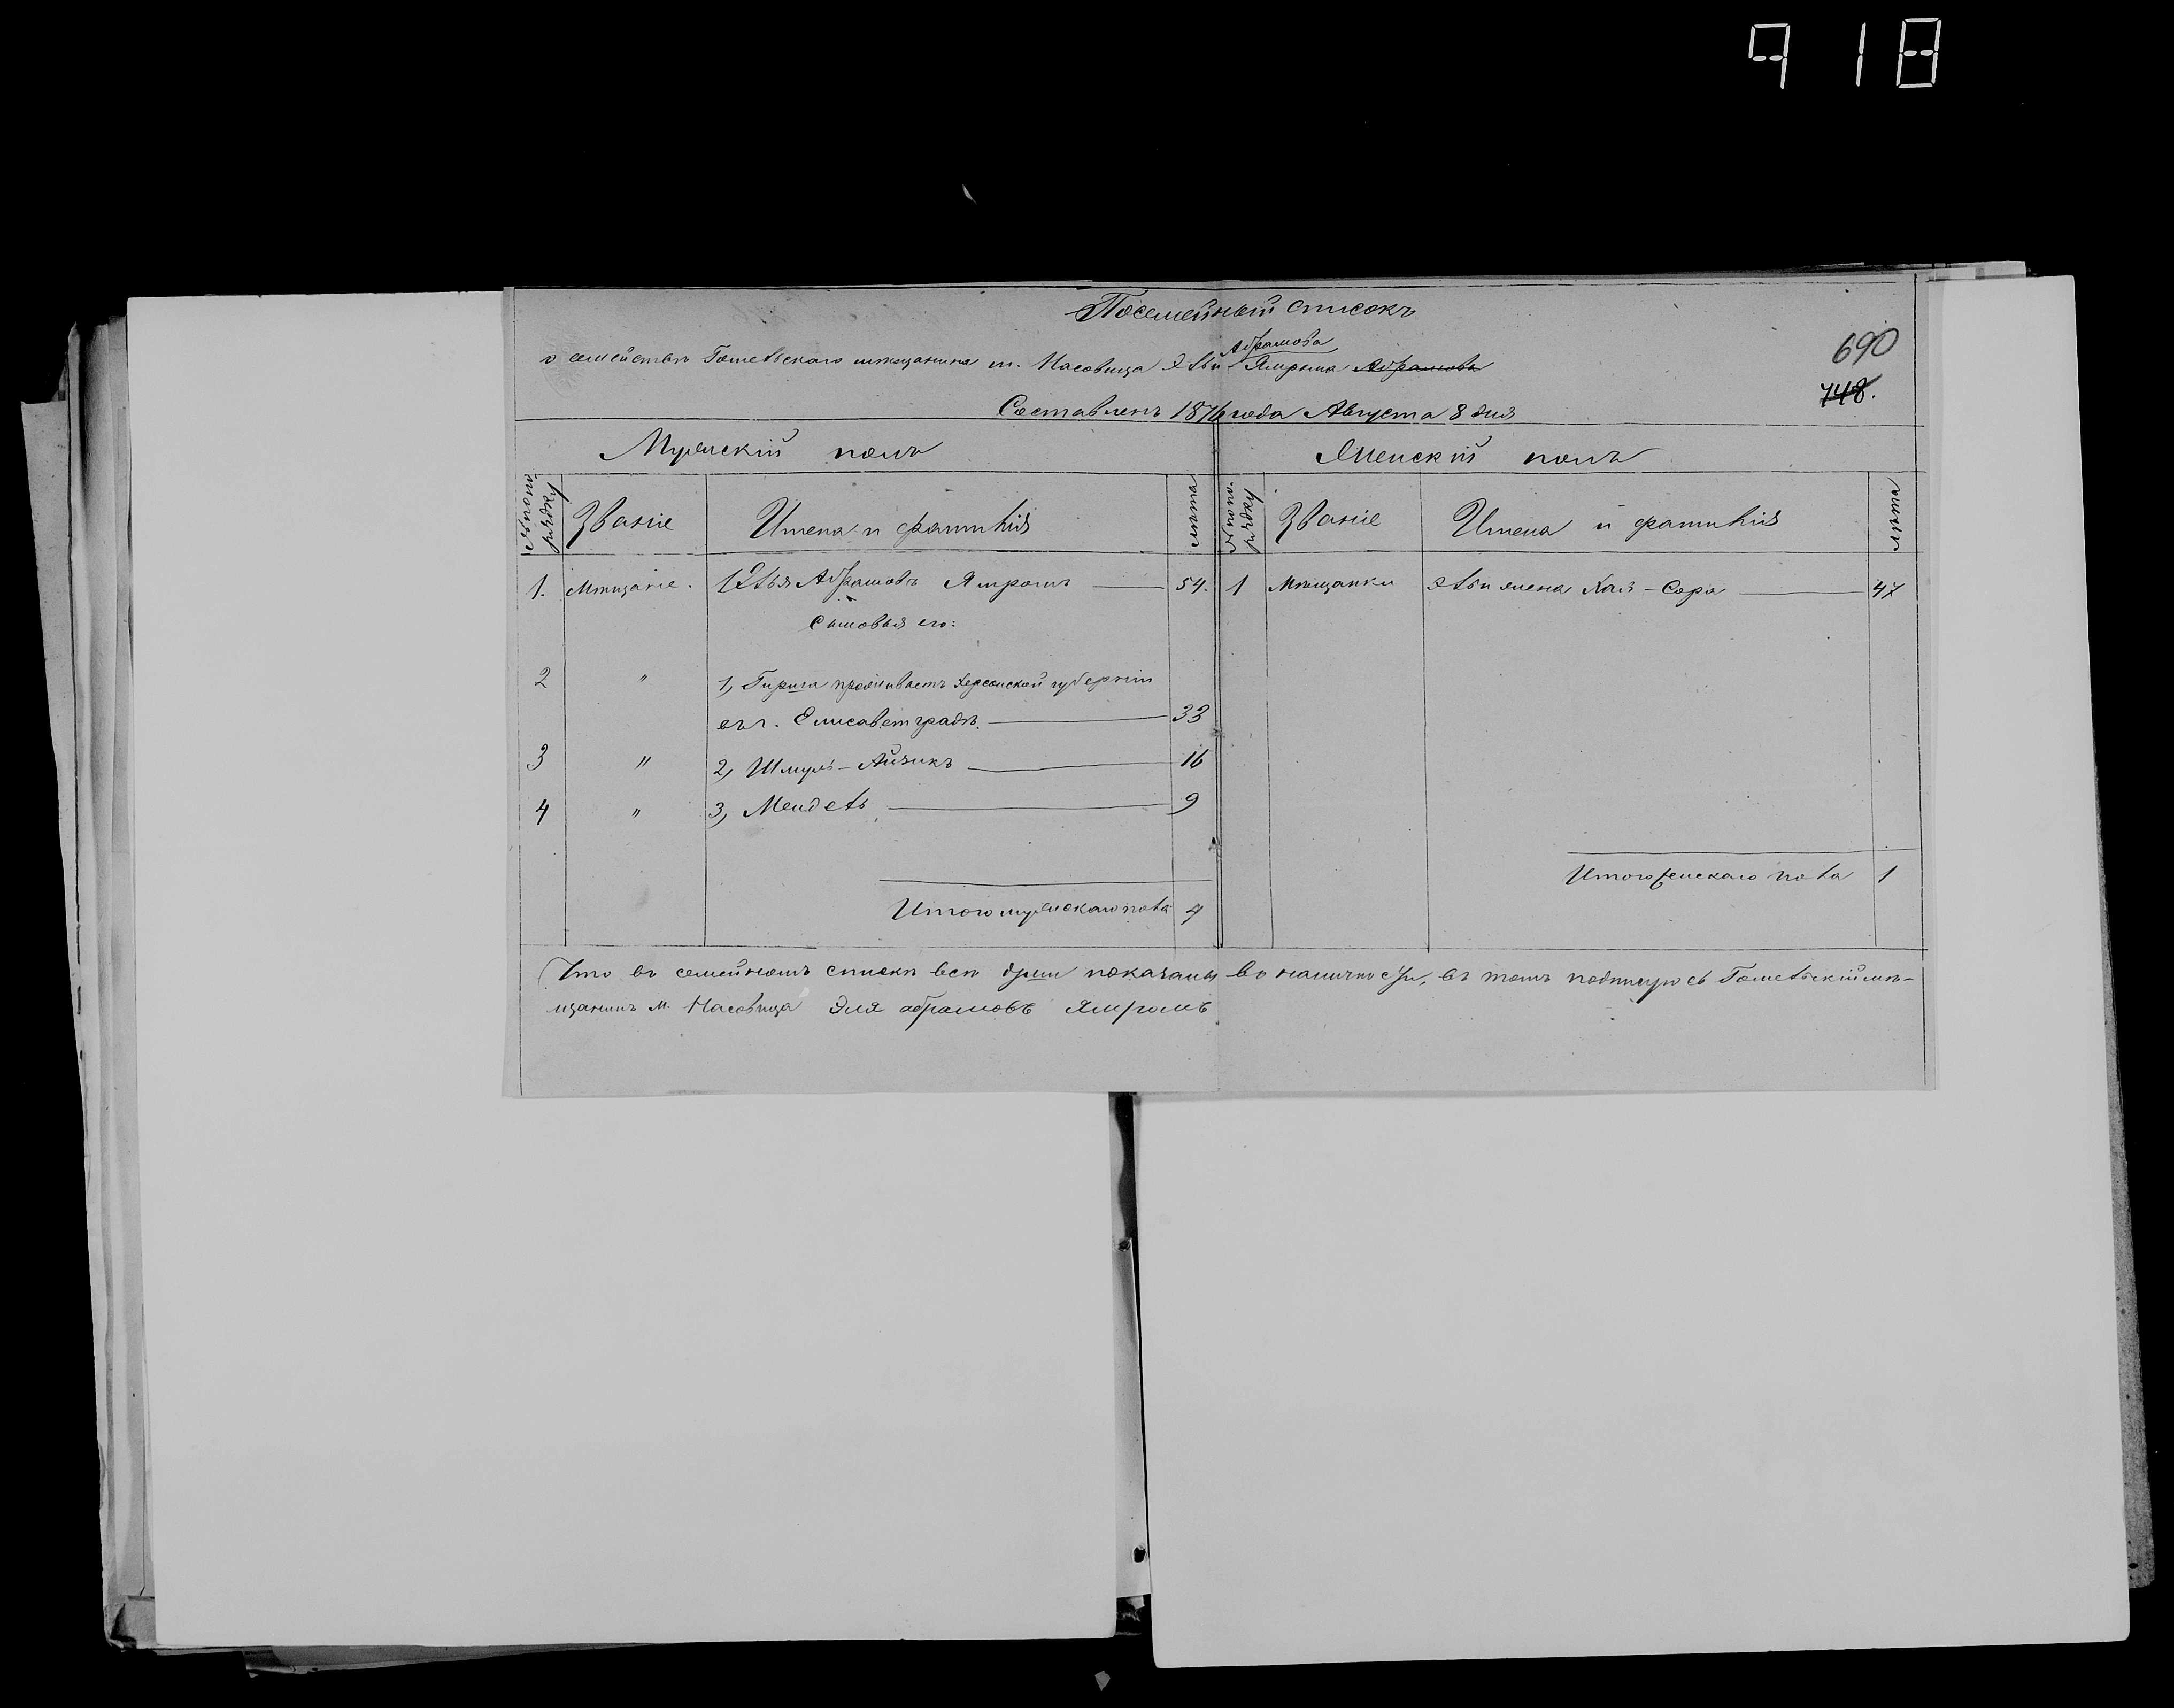 918
Посемейный списокъ
690
Абрамова
о семействѣ Гомельскаго мѣщанина м. Насовица Эльи Ямрома Абрамовъ
748.
Составленъ 1876 года Августа 8 дня
Мужскій полъ Женскій полъ
№ по порядку Званіе Имена и фамилія лѣта № по порядку Званіе Имена и фамилія лѣта
1. Мѣщане. Элья Абрамовъ Ямромъ 54. 1 Мѣщанки Эльи жена Хая-Сора 47
Сыновья его:
2 " 1, проживаетъ Херсонской губерніи
въ г. Елисаветградѣ. 33
3 " 2, Шмуль-Айзикъ 16
4 " 3, Мендель 9
Итого женскаго пола 1
Итого мужскаго пола 4
Что въ семейномъ спискѣ всѣ души показаны въ наличности, въ томъ подписуюсь Гомельскій мѣ-
щанинъ м. Насовица Эля абрамовъ Ямромъ